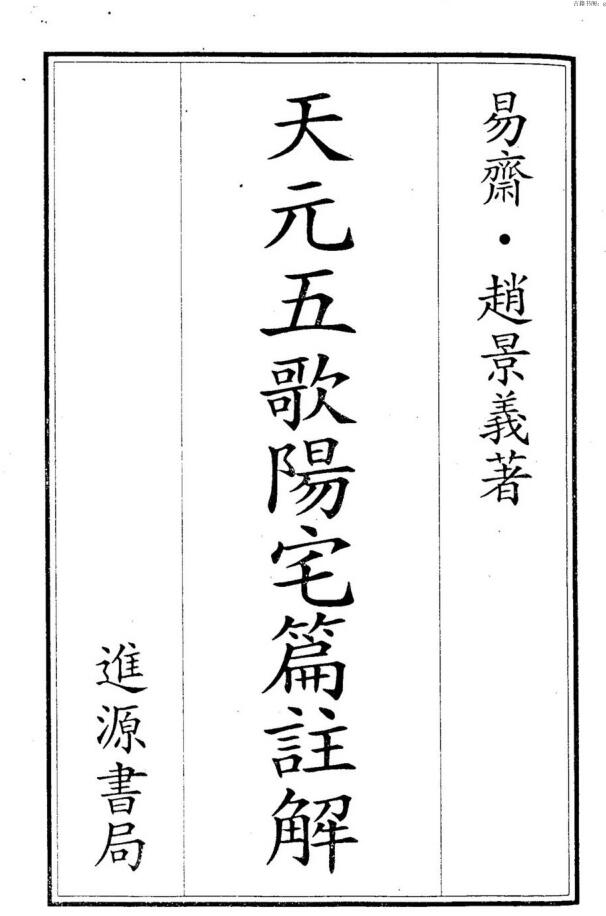 易齋・趙景義著
天元五歌陽宅篇註解
進源書局